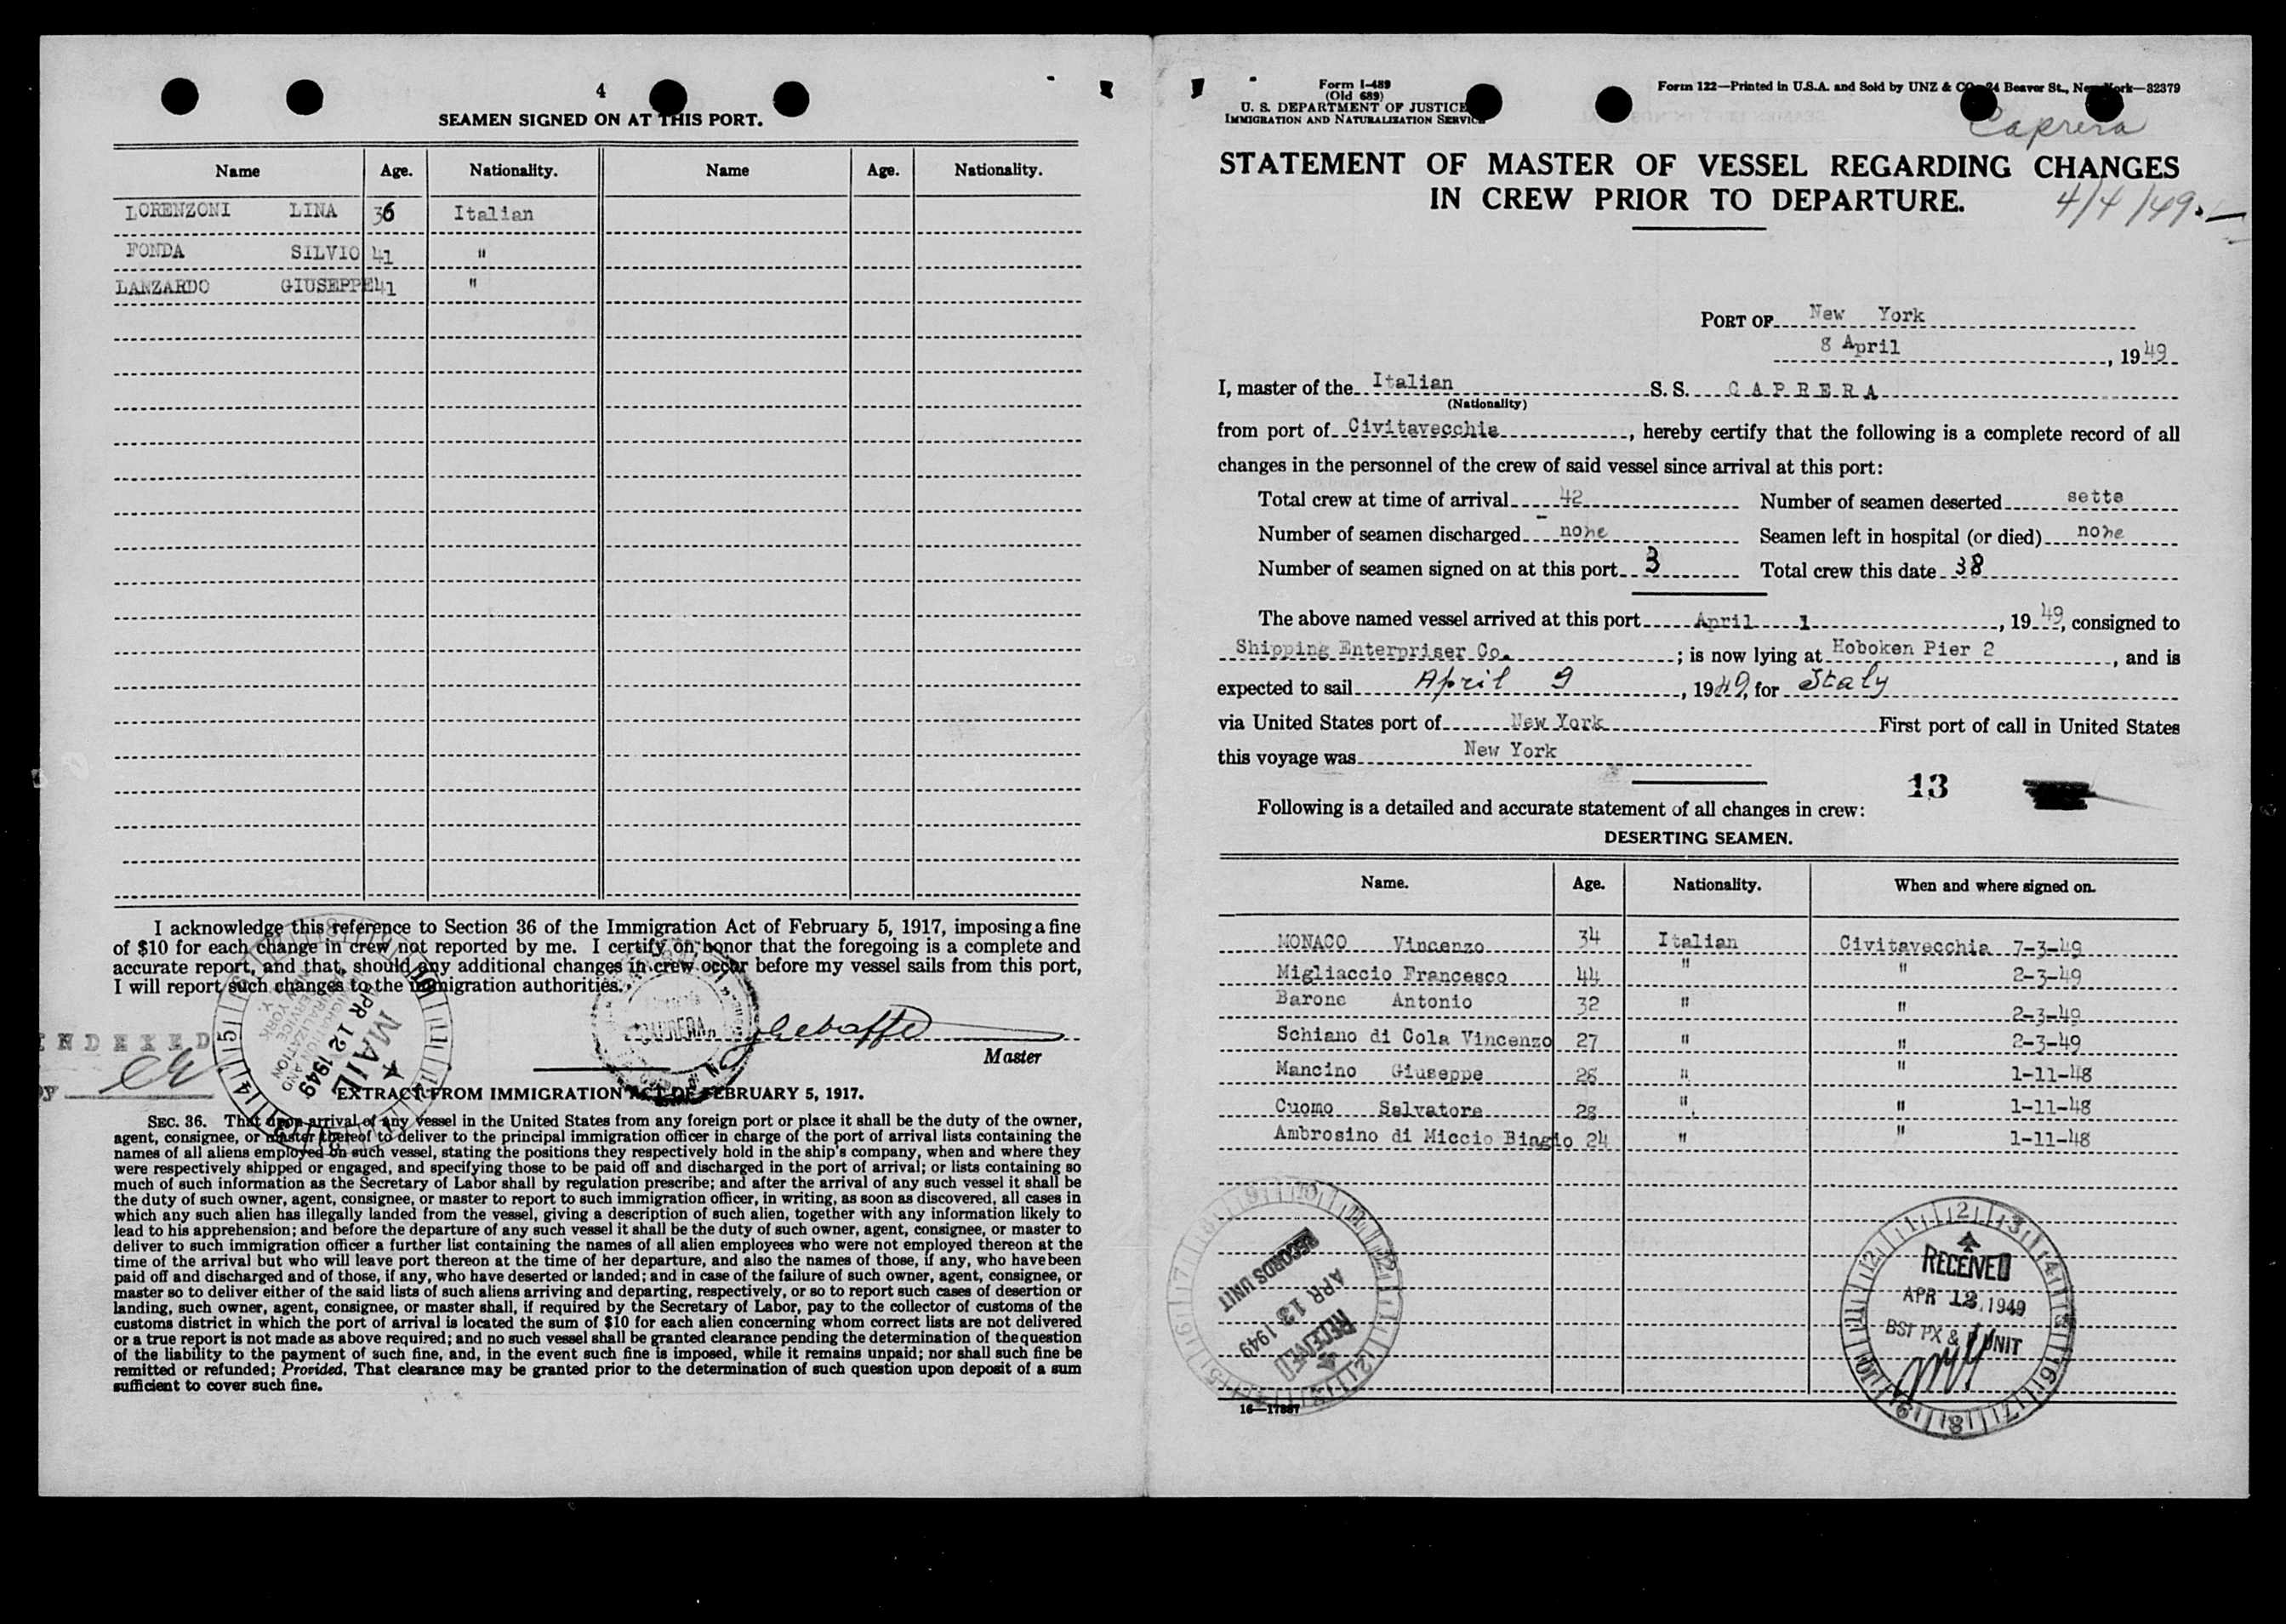 4
SEAMEN SIGNED ON AT THIS PORT.
Name Age. Nationality. Name Age. Nationality.
LORENZONI LINA 36 Italian
FONDA SILVIO 41 "
LANZARDO GIUSEPPE 41 "
I acknowledge this reference to Section 36 of the Immigration Act of February 5, 1917, imposing a fine
of $10 for each change in crew not reported by me. I certify on honor that the foregoing is a complete and
accurate report, and that, should any additional changes in crew occur before my vessel sails from this port,
I will report such changes to the immigration authorities.
"CAPRERA"
Master
INDEXED
by
MAIL
APR 12 1949
IMMIGRATION AND
NATURALIZATION
SERVICE
NEW YORK
N. Y.
EXTRACT FROM IMMIGRATION ACT OF FEBRUARY 5, 1917.
SEC. 36. That upon arrival of any vessel in the United States from any foreign port or place it shall be the duty of the owner,
agent, consignee, or master thereof to deliver to the principal immigration officer in charge of the port of arrival lists containing the
names of all aliens employed on such vessel, stating the positions they respectively hold in the ship's company, when and where they
were respectively shipped or engaged, and specifying those to be paid off and discharged in the port of arrival; or lists containing so
much of such information as the Secretary of Labor shall by regulation prescribe; and after the arrival of any such vessel it shall be
the duty of such owner, agent, consignee, or master to report to such immigration officer, in writing, as soon as discovered, all cases in
which any such alien has illegally landed from the vessel, giving a description of such alien, together with any information likely to
lead to his apprehension; and before the departure of any such vessel it shall be the duty of such owner, agent, consignee, or master to
deliver to such immigration officer a further list containing the names of all alien employees who were not employed thereon at the
time of the arrival but who will leave port thereon at the time of her departure, and also the names of those, if any, who have been
paid off and discharged and of those, if any, who have deserted or landed; and in case of the failure of such owner, agent, consignee, or
master so to deliver either of the said lists of such aliens arriving and departing, respectively, or so to report such cases of desertion or
landing, such owner, agent, consignee, or master shall, if required by the Secretary of Labor, pay to the collector of customs of the
customs district in which the port of arrival is located the sum of $10 for each alien concerning whom correct lists are not delivered
or a true report is not made as above required; and no such vessel shall be granted clearance pending the determination of the question
of the liability to the payment of such fine, and, in the event such fine is imposed, while it remains unpaid; nor shall such fine be
remitted or refunded; Provided, That clearance may be granted prior to the determination of such question upon deposit of a sum
sufficient to cover such fine.
Form I-489
(Old 689)
U. S. DEPARTMENT OF JUSTICE
IMMIGRATION AND NATURALIZATION SERVICE
Form 122—Printed in U.S.A. and Sold by UNZ & CO. 24 Beaver St., New York—32379
Caprera
STATEMENT OF MASTER OF VESSEL REGARDING CHANGES
IN CREW PRIOR TO DEPARTURE.
4/4/49.—
PORT OF New York
8 April, 1949
I, master of the Italian S. S. CAPRERA
(Nationality)
from port of Civitavecchia, hereby certify that the following is a complete record of all
changes in the personnel of the crew of said vessel since arrival at this port:
Total crew at time of arrival 42 Number of seamen deserted sette
Number of seamen discharged none Seamen left in hospital (or died) none
Number of seamen signed on at this port 3 Total crew this date 38
The above named vessel arrived at this port April 1, 1949, consigned to
Shipping Enterpriser Co.; is now lying at Hoboken Pier 2, and is
expected to sail April 9, 1949, for Italy
via United States port of New York First port of call in United States
this voyage was New York
13
Following is a detailed and accurate statement of all changes in crew:
DESERTING SEAMEN.
Name. Age. Nationality. When and where signed on.
MONACO Vincenzo 34 Italian Civitavecchia 7-3-49
Migliaccio Francesco 44 " " 2-3-49
Barone Antonio 32 " " 2-3-49
Schiano di Cola Vincenzo 27 " " 2-3-49
Mancino Giuseppe 28 " " 1-11-48
Cuomo Salvatore 28 " " 1-11-48
Ambrosino di Miccio Biagio 24 " " 1-11-48
RECORDS UNIT
APR 13 1949
RECEIVED
RECEIVED
APR 12 1949
BSI PX & UNIT
16—17887